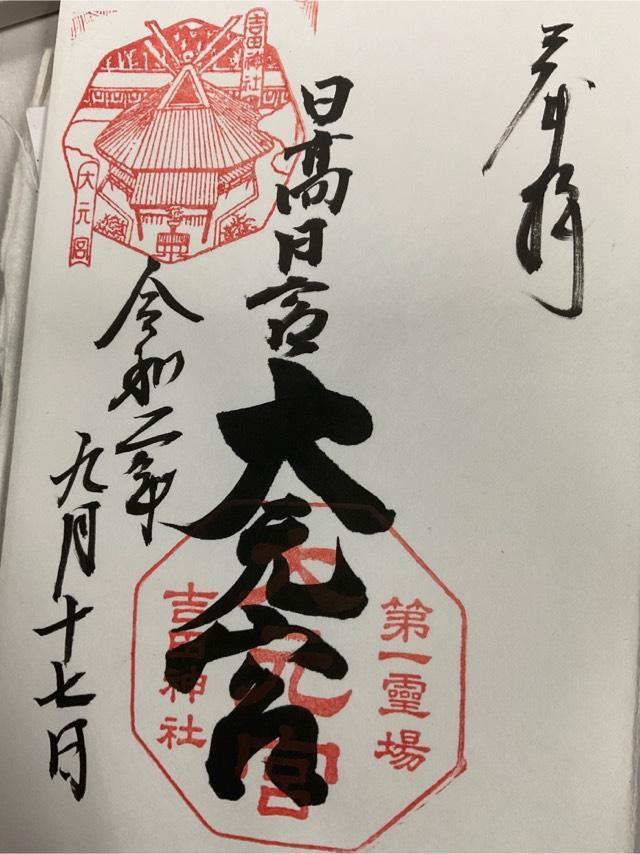 奉拝
日髙日宮
大元宮
令和二年
九月十七日
吉田神社
大元宮
第一靈場
大元宮
吉田神社